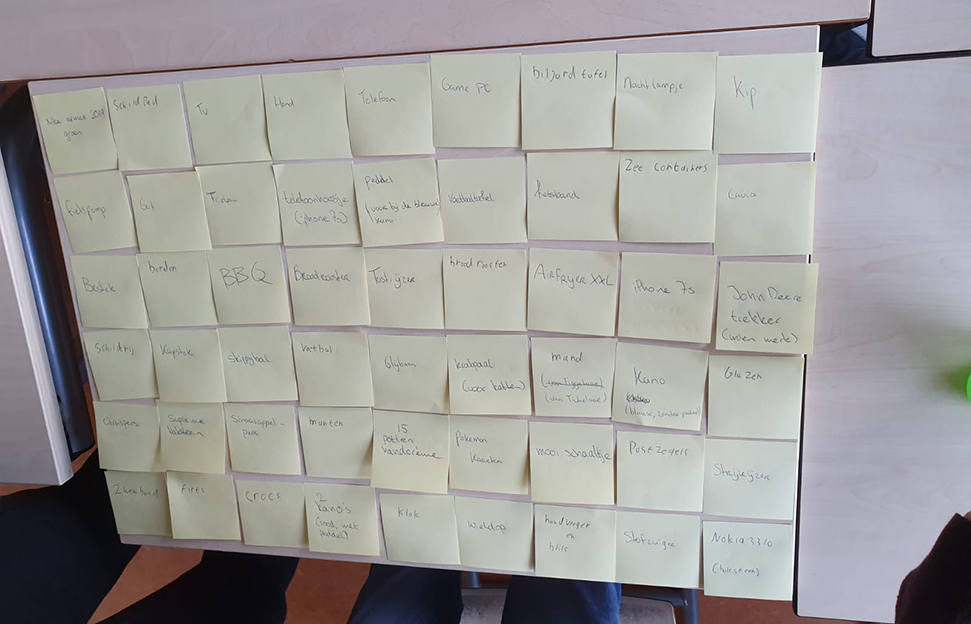 groen
Schildpad
Tv
Hond
Telefoon
Game PC
biljard tafel
Nachtlampje
Kip
fietspomp
telefoonhoesje
(iphone 7s)
peddel
(voor bij de blauwe
kano
Voetbaltafel
fietsband
Zee containers
Cavia
Bestek
borden
BBQ
Broodrooster
Tostijzer
brood rooster
Airfryer XXL
iPhone 7s
John Deere
trekker
Schilderij
Kapstok
skippybal
voetbal
Glijbaan
krabpaal
(voor katten)
mand
Kano
(blauw, zonder peddel)
Glazen
Sinaasappel-
pers
munten
15
potten
handcrème
Pokemon
Kaarten
mooi schaaltje
Postzegels
Strijkijzer
Zwembad
Fiets
crocs
2
Kano's
(rood, met
peddel)
Klok
Wieldop
handveger
en
blik
Stofzuiger
Nokia 3310